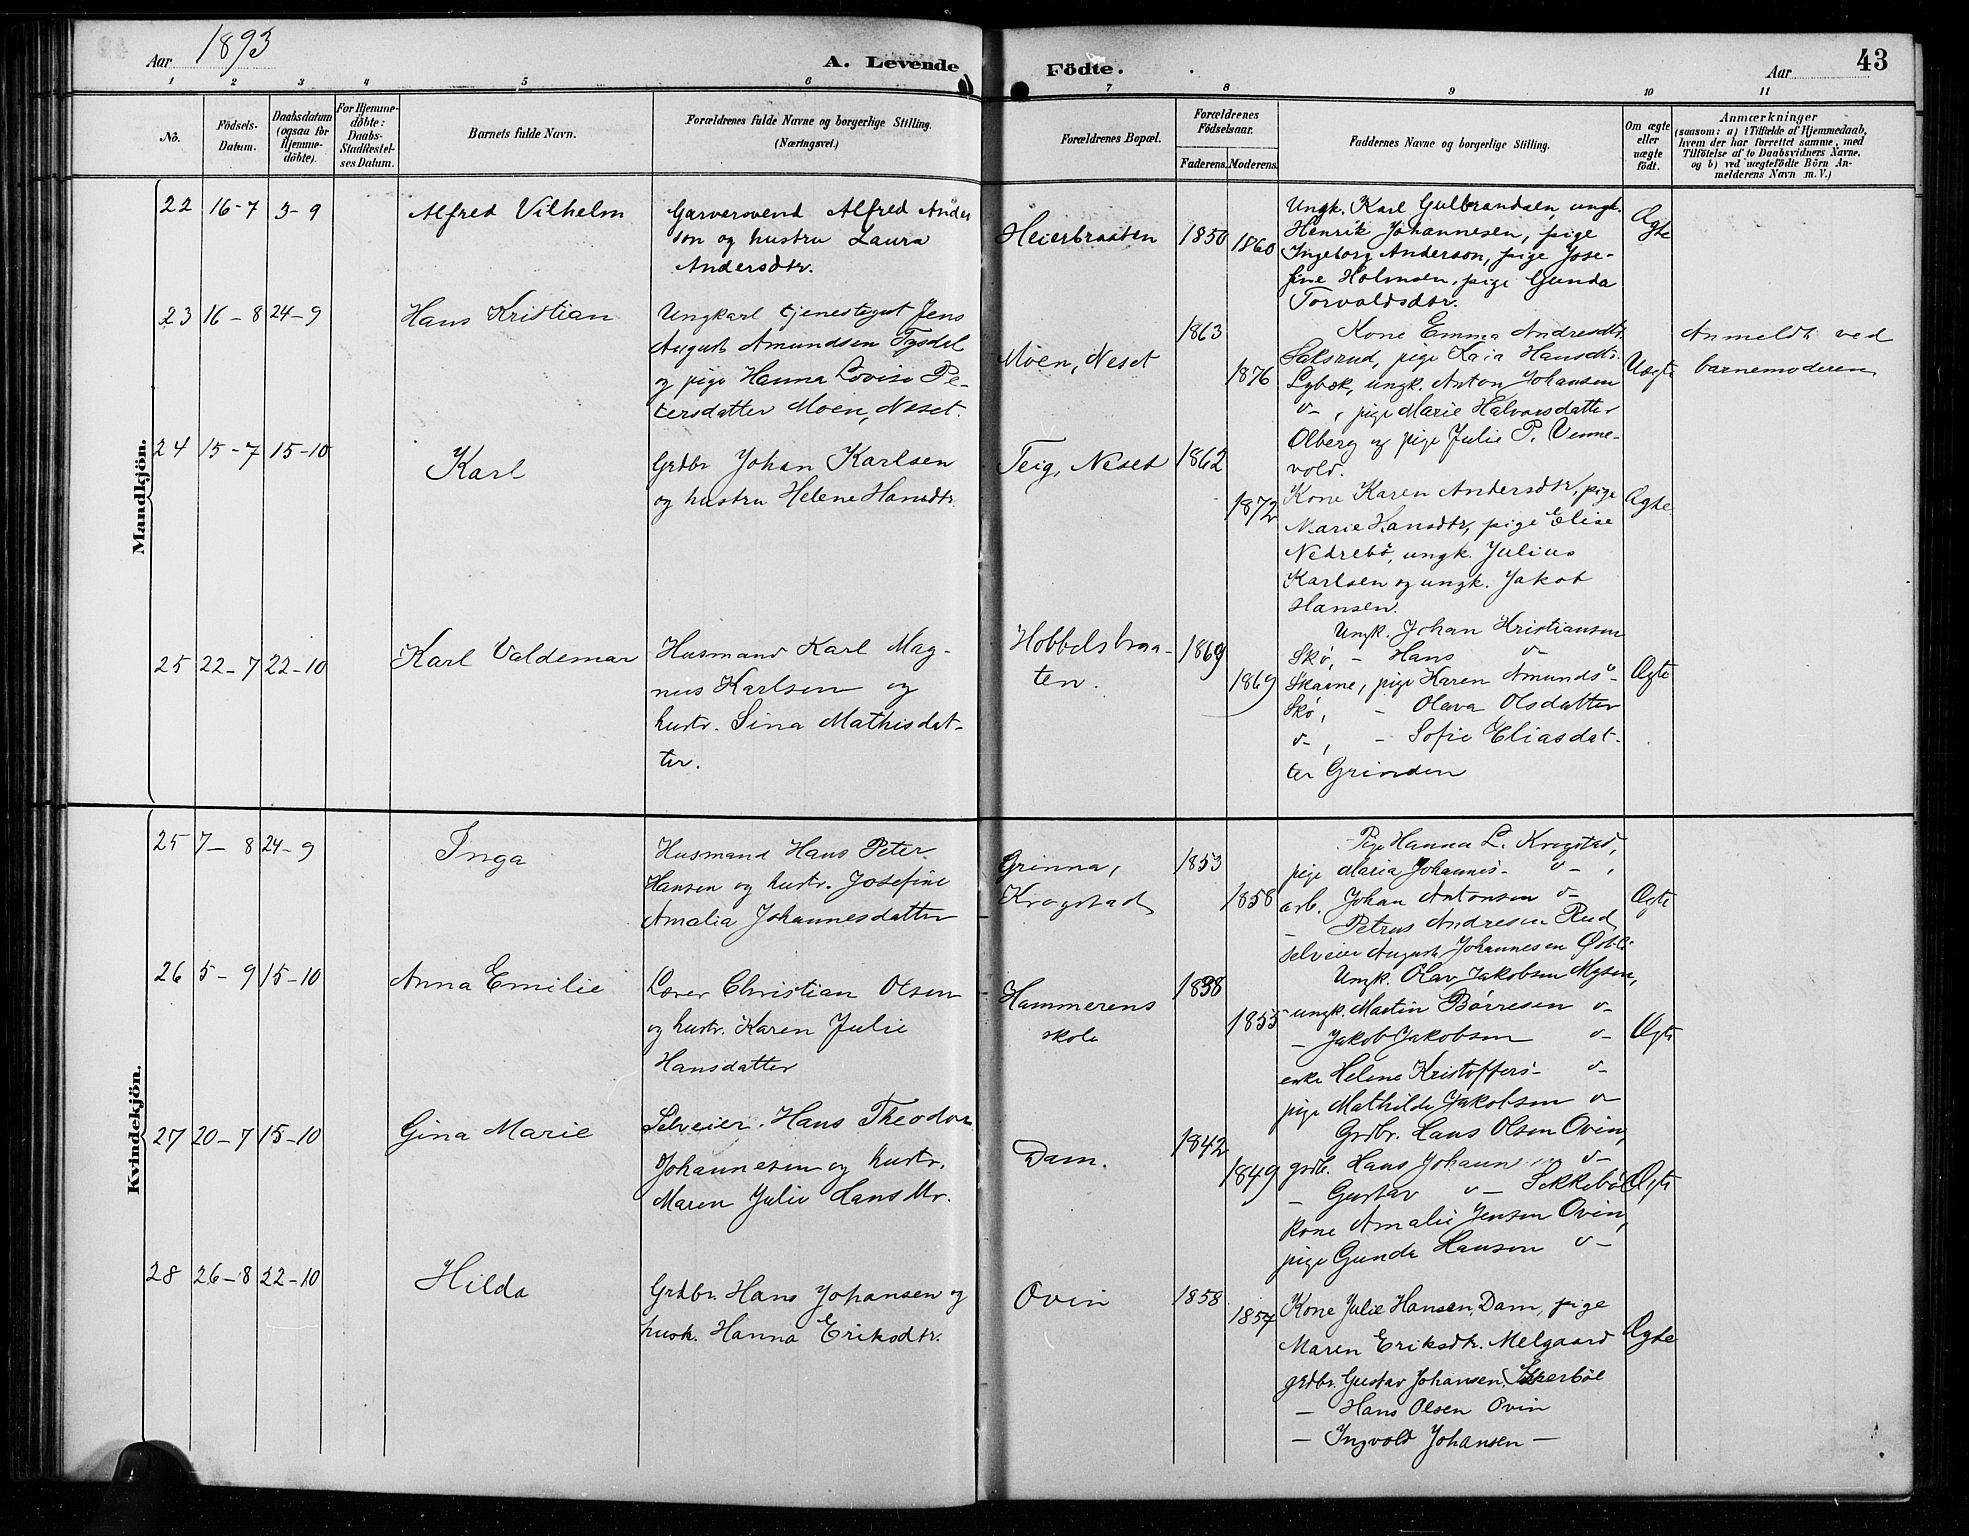 Aar 1893
A. Levende Födte.
Aar
43
1 2 3 4 5 6 7 8 9 10 11
Nô.
Födsels-
Datum.
Daabsdatum
(ogsaa for
Hjemme-
döbte).
For Hjemme-
döbte:
Daabs-
Stadfæstel-
ses Datum.
Barnets fulde Navn.
Forældrenes fulde Navne og borgerlige Stilling.
(Næringsvei.)
Forældrenes Bopæl.
Forældrenes
Fødselsaar.
Faderens. Moderens.
Faddernes Navne og borgerlige Stilling.
Om ægte
eller
uægte
födt.
Anmærkninger
(saasom: a) i Tilfælde af Hjemmedaab,
hvem der har forrettet samme, med
Tilföielse af to Daabsvidners Navne,
og b) ved uægtefödte Börn An-
melderens Navn m. V.)
Mandkjön.
22 16-7 3-9
Alfred Vilhelm
Garversvend Alfred Ander
son og hustru Laura
Andersdtr.
Heierbraaten
1850
1860
Ungk. Karl Gulbrandsen, ungk.
Henrik Johannesen, pige
Ingeborg Anderson, pige Jose-
fine Holmsen, pige Gunda
Torvaldsdtr.
Ægte
23 16-8 24-9
Hans Kristian
Ungkarl tjenestegut Jens
August Amundsen Tysdal
og pige Hanna Lovise Pe-
tersdatter Moen, Neset.
Moen, Neset
1863
1876
Kone Emma Andresdtr.
Saksrud, pige Kaia Hansdtr.
Lybæk, ungk. Anton Johansen
v-, pige Marie Halvorsdatter
Olberg og pige Julie P. Venne-
vold.
Uægte
Anmeldt ved
barnemoderen
24 15-7 15-10
Karl
Grdbr Johan Karlsen
og hustru Helene Hansdtr.
Teig, Neset
1862
1872
Kone Karen Andersdtr, pige
Marie Hansdtr, pige Elise
Nedrebö, ungk. Julius
Karlsen og ungk. Jakob
Hansen.
Ægte
25 22-7 22-10
Karl Valdemar
Husmand Karl Mag-
nus Karlsen og
hustr. Sina Mathisdat-
ter.
Hobbelsbraa-
ten.
1869
1869
Ungk. Johan Kristiansen
Skø, - Hans v-
Skarne, pige Karen Amunds-
Skø, - Olava Olsdatter
v-, - Sofie Eliasdat-
ter Grinden
Ægte
Kvindekjön.
25 7-8 24-9
Inga
Husmand Hans Peter
Hansen og hustr. Josefine
Amalia Johannesdatter
Grinna,
Krogstad
1853
1858
Pige Hanna L. Krogstad,
pige Maria Johannes- v-,
arb. Johan Antonsen v-
- Petrus Andresen Rud
selveier August Johannesen
Ægte
26 5-9 15-10
Anna Emilie
Lærer Christian Olsen
og hustr. Karen Julie
Hansdatter
Hammerens
skole
1838
1855
Ungk. Olav Jakobsen Mysen,
ungk. Martin Børresen v-
- Jakob Jakobsen v-
enke Helene Kristoffers- v-
pige Mathilde Jakobsen v-
Ægte
27 20-7 15-10
Gina Marie
Selveier Hans Theodor
Johannesen og hustr.
Maren Julie Hansdtr.
Dam.
1842
1849
Grdbr. Hans Olsen Ovin,
grdb. Hans v-
- Gustav v-
kone Amalie Jensen Ovin,
pige Gunda Hansen v-
Ægte
28 26-8 22-10
Hilda
Grdbr. Hans Johansen og
hustr. Hanna Eriksdtr.
Ovin
1858
1857
Kone Julie Hansen, Dam, pige
Maren Eriksdtr. Melgaard
grdbr. Gustav Johansen,
- Hans Olsen Ovin
- Ingvold Johansen -
Ægte